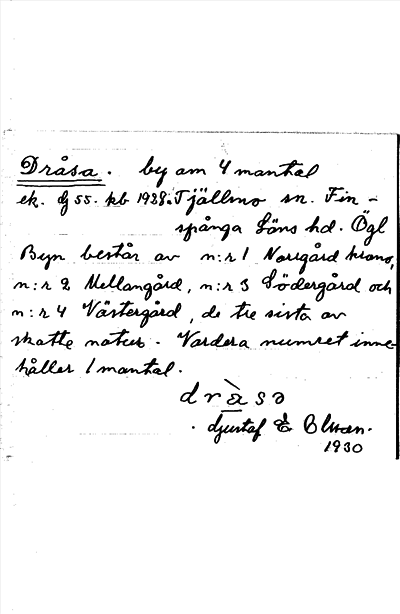 Dråsa. by om 4 mantal
ek. bl 55. kb 1928. Tjällmo sn. Fin-
spånga Läns hd. Ögl
Byn består av n:r 1 Norrgård krono,
n:r 2 Mellangård, n:r 3 Södergård och
n:r 4 Västergård, de tre sista av
skatte natur. Vardera numret inne-
håller 1 mantal.
dràsə
Gustaf E Olsson.
1930